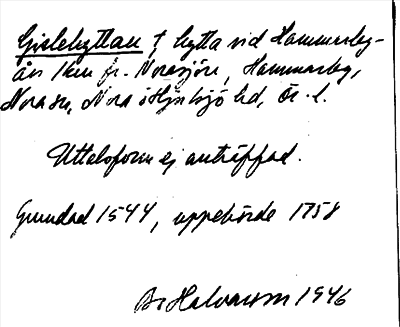 Gislehyttan, † hytta vid Hammarby-
ån 1 km fr. Norasjön, Hammarby,
Nora sn, Nora o Hjulsjö hd, Ör. l.
Uttalsform ej anträffad.
Grundad 1544, upphörde 1758
Br Halvarson 1946